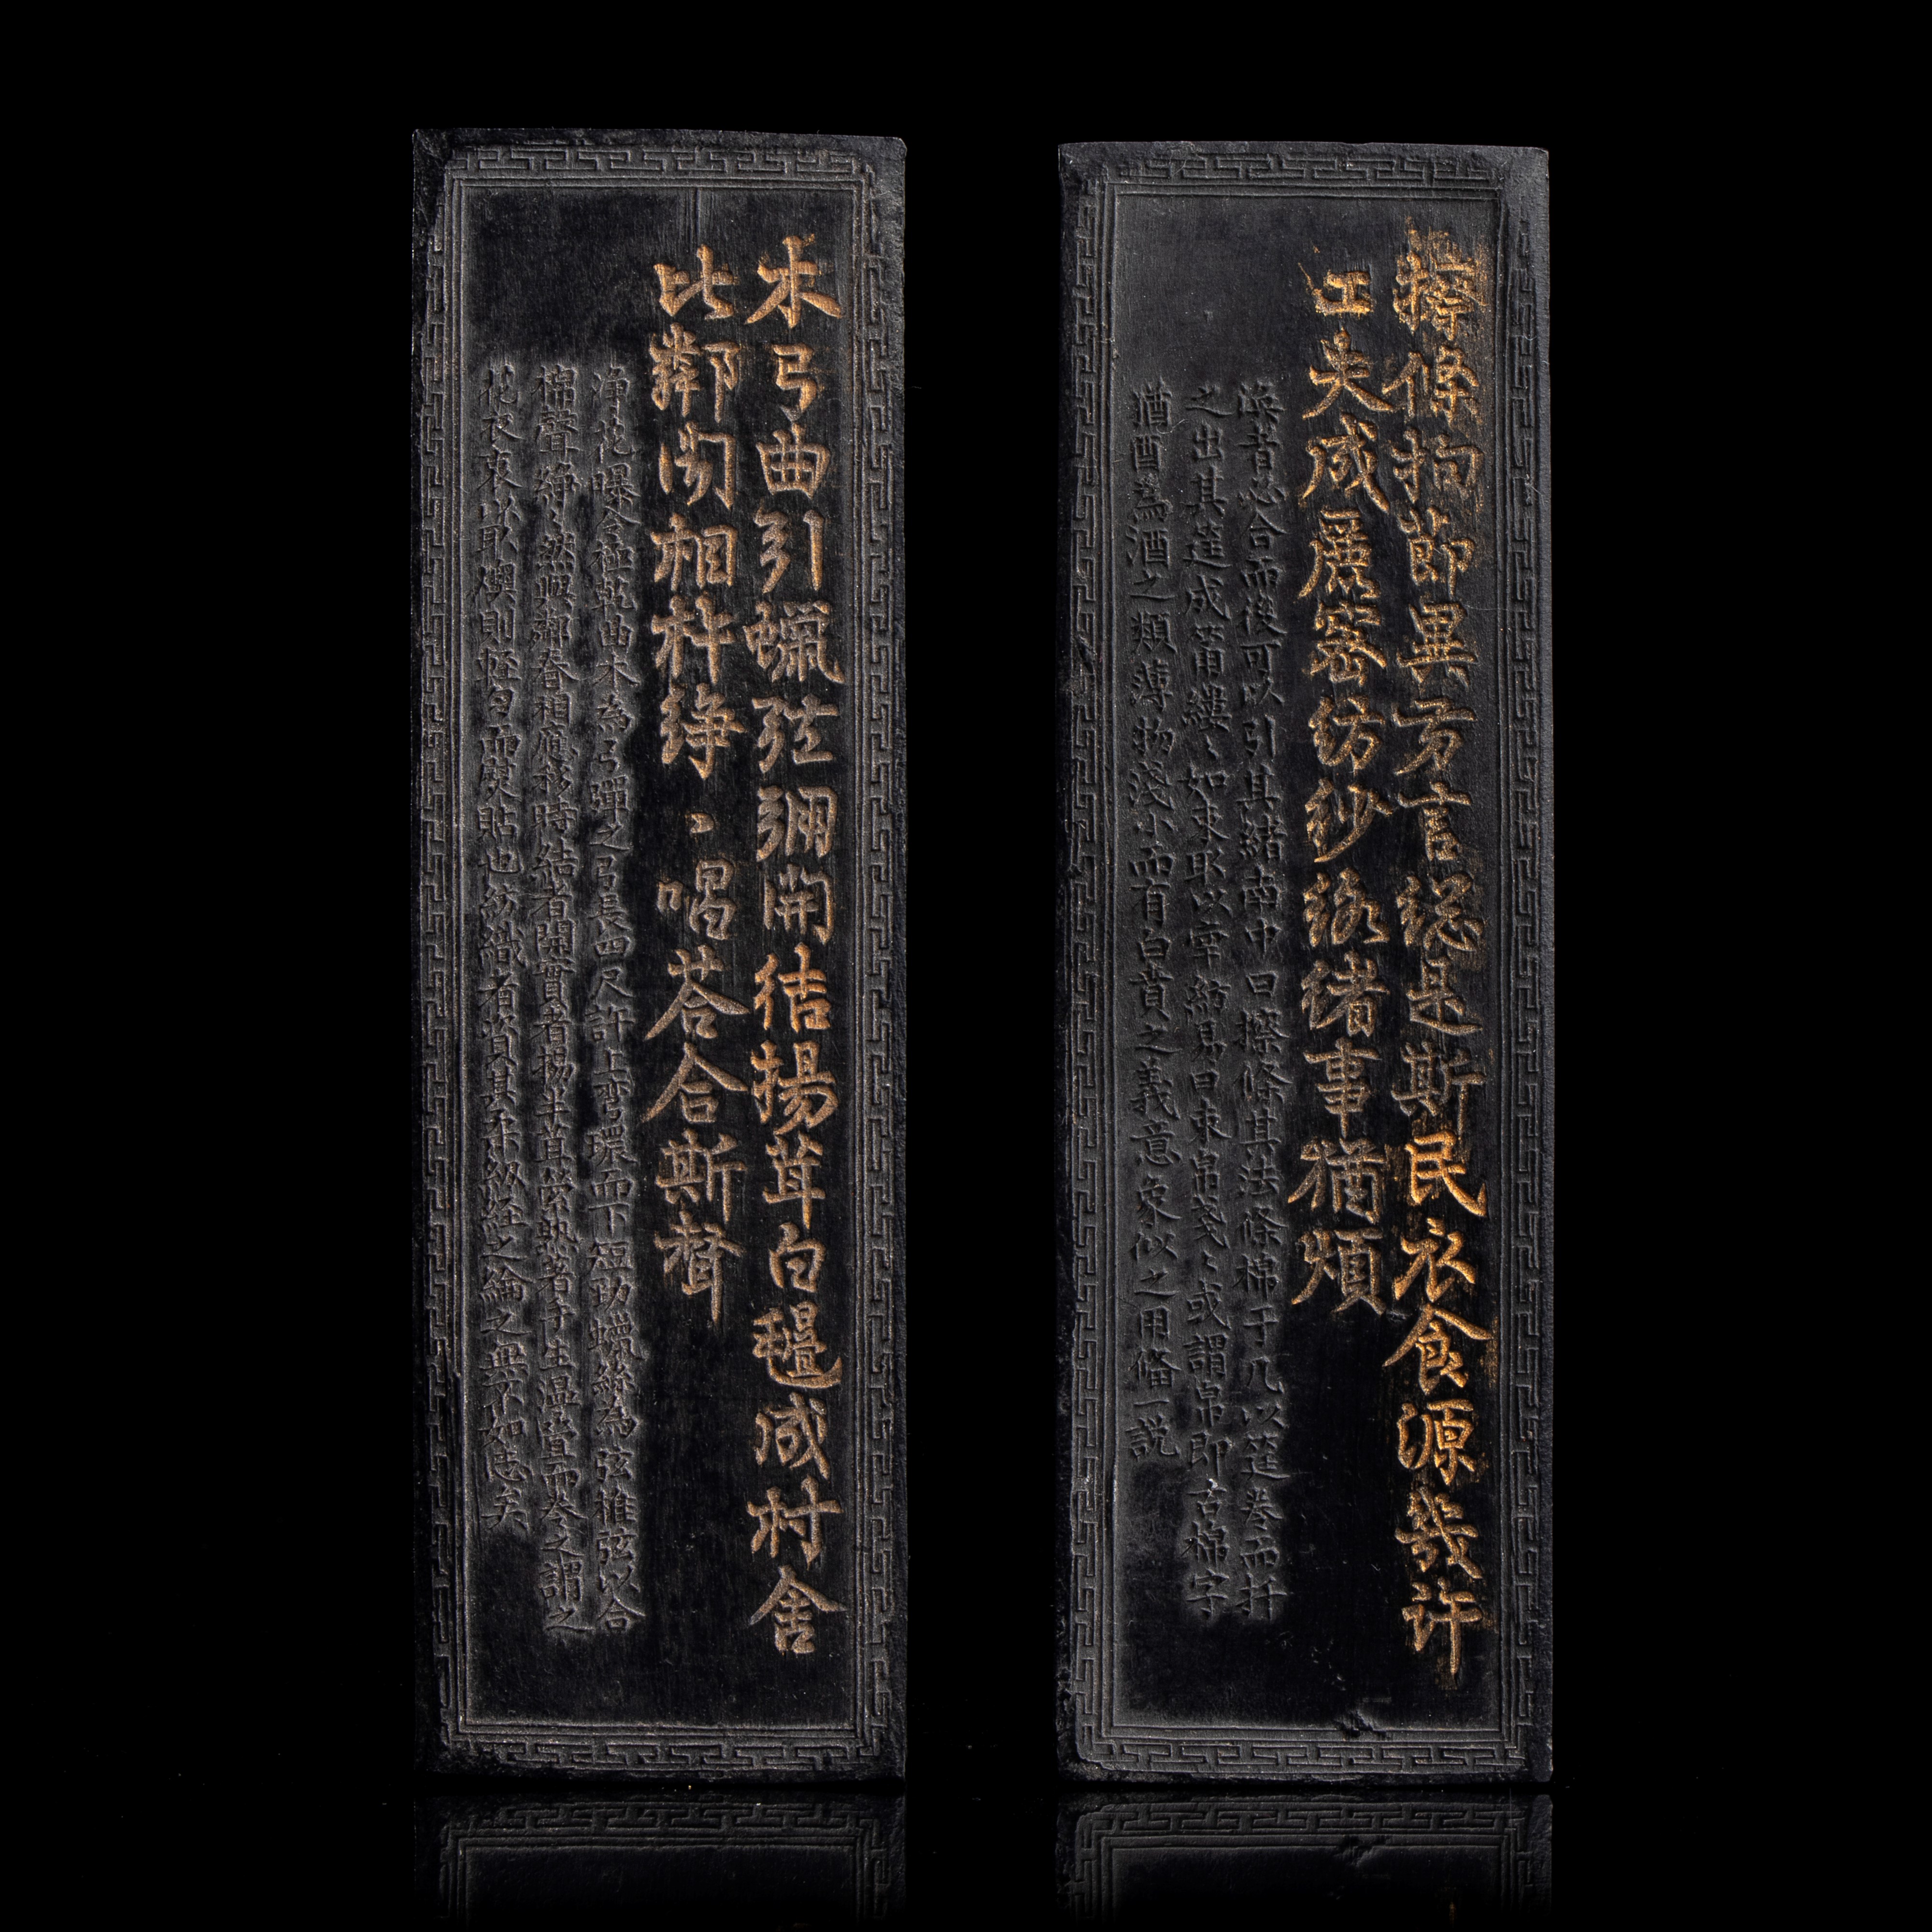 木弓曲引蠟弦弸開結揚茸白氎成村舍
比鄰聞相杵錚〻唱荅合斯聲
淨花曝令極乾曲木為弓彈之弓長四尺許上彎環而下短勁蠟絲為弦椎弦以合
棉聲錚〻然與鄰舂相應移時結者開實者揚丰茸縈熟著手生温疊而卷之謂之
花衣裒以取燠則輕勻而熨貼也紡織者資其柔紉經之綸之無不如志矣
擦條拘節異方言總是斯民衣食源幾許
工夫成麗密紡紗絡緒事猶煩
渙者必合而後可以引其緒南中曰擦條其法條棉于几以筳卷而扞
之出其筳成筩縷〻如束取以牽紡易曰束帛戔〻或謂帛即古棉字
猶酋為酒之類薄物淺小而有白賁之義意象似之用備一說